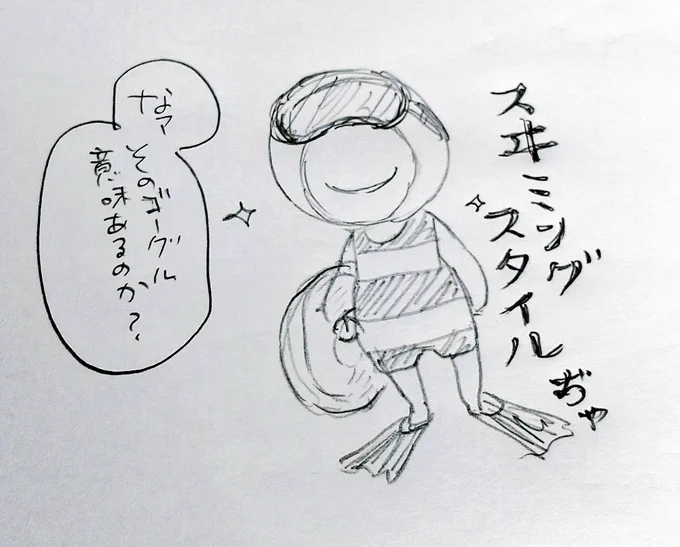 スヰミング
スタイル
ぢゃ
なァ
そのゴーグル
意味あるのか?